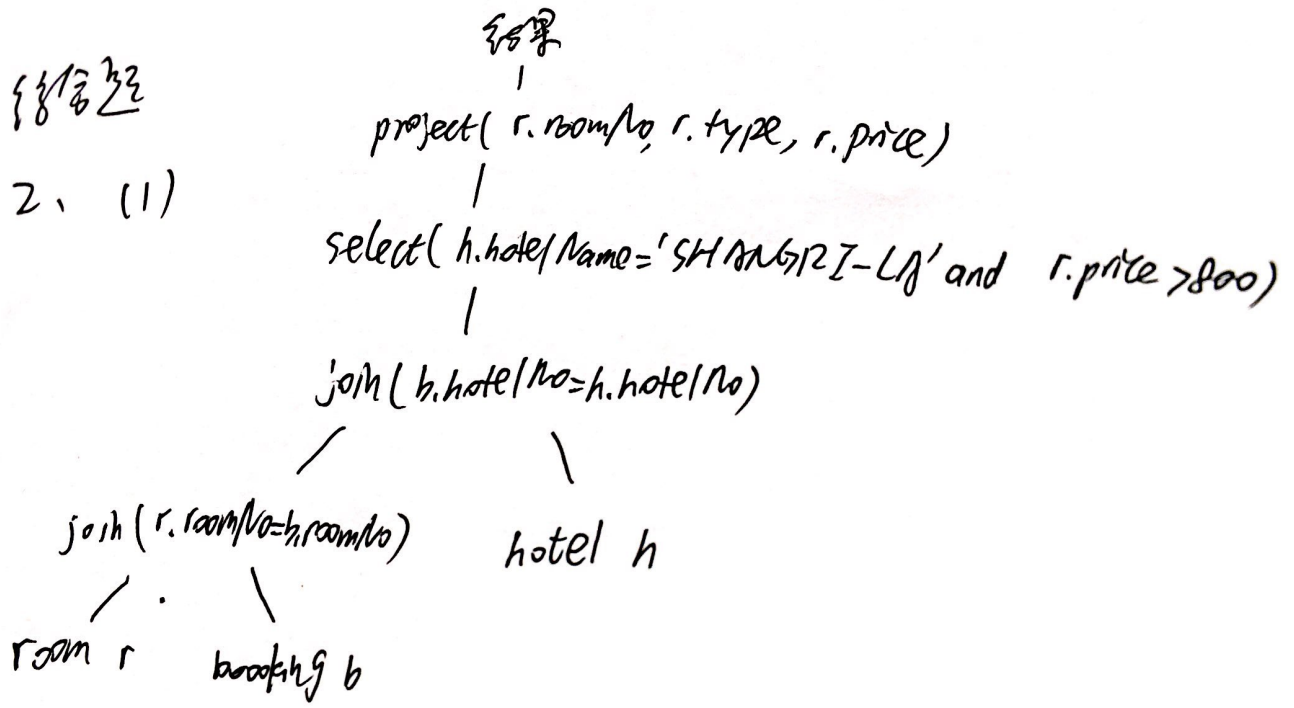 结果
综合题
project( r.roomNo, r.type, r.price)
2、 (1)
select( h.hotelName='SHANGRI-LA' and r.price>800)
join( b.hotelNo=h.hotelNo)
join(r.roomNo=b.roomNo) hotel h
room r booking b